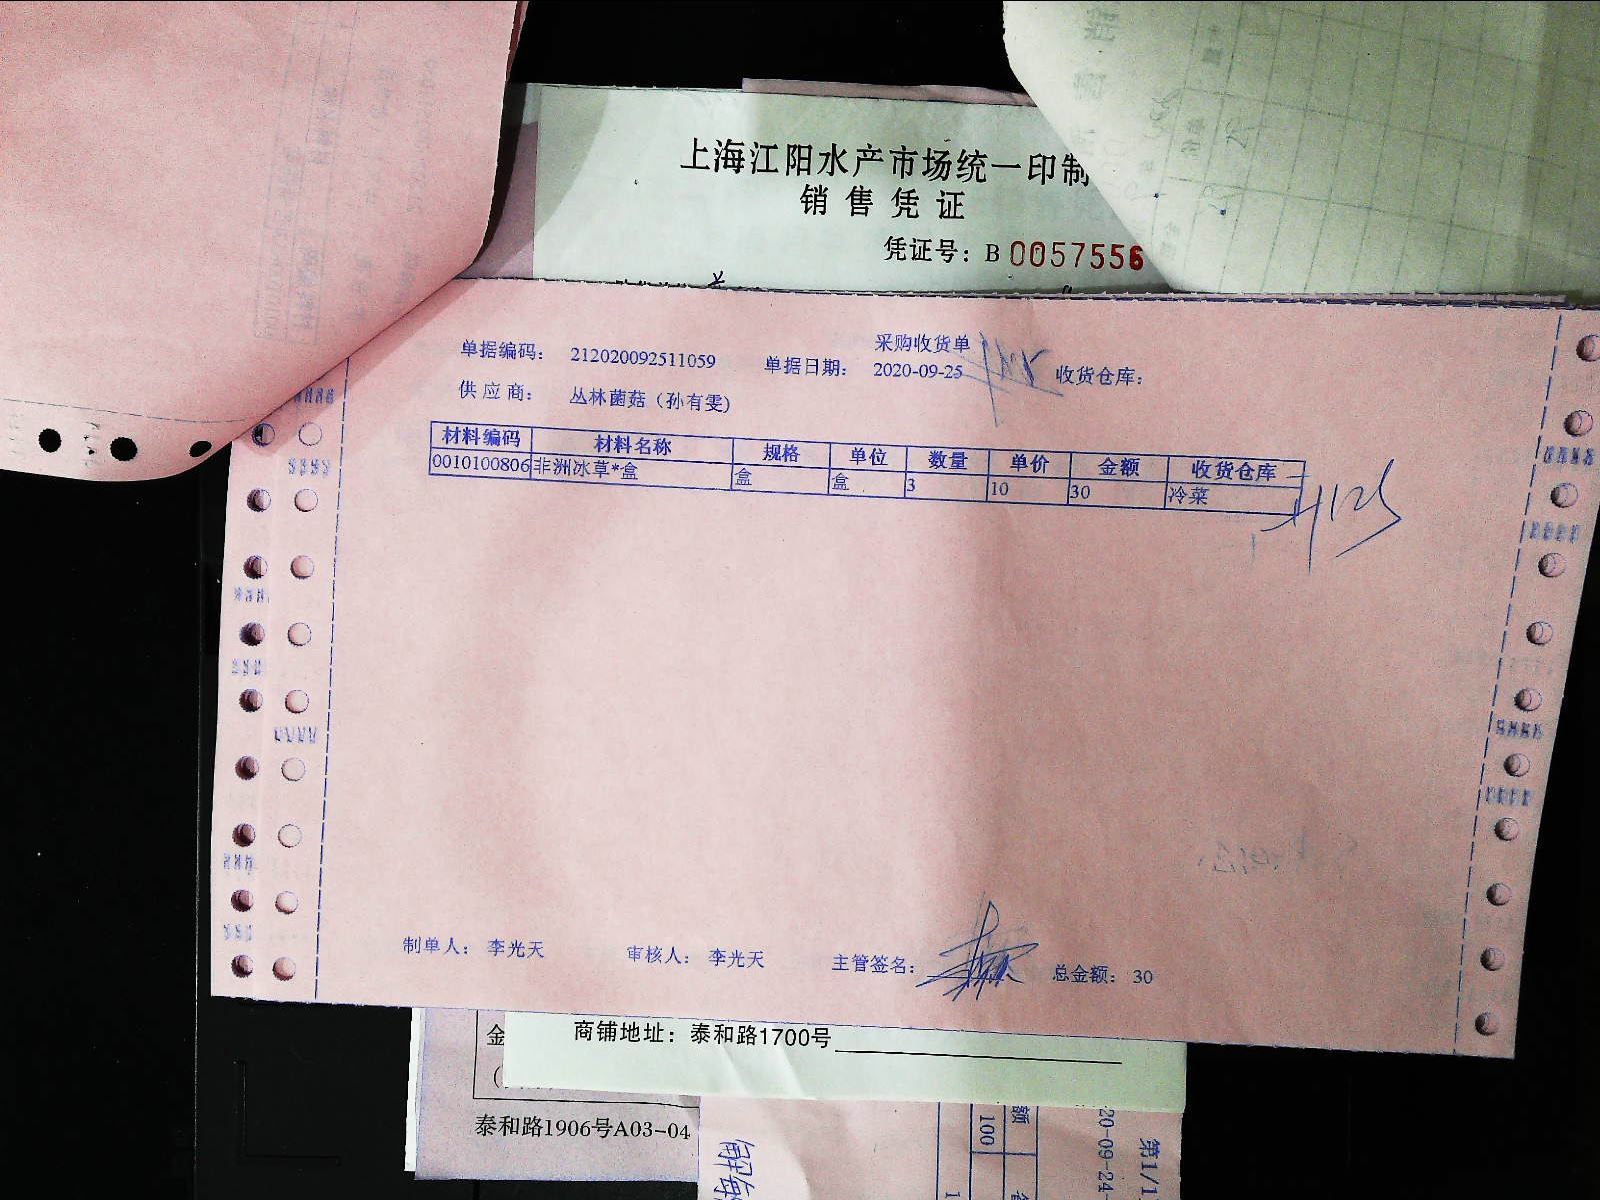 上海江阳水产市场统一印制
销售凭证
凭证号：B 0057556
采购收货单
单据编码： 212020092511059 单据日期： 2020-09-25 收货仓库：
供应商： 丛林菌菇（孙有雯）
材料编码 材料名称 规格 单位 数量 单价 金额 收货仓库
0010100806 非洲冰草*盒 盒 盒 3 10 30 冷菜
制单人： 李光天 审核人： 李光天 主管签名： 总金额： 30
商铺地址：泰和路1700号
金
泰和路1906号A03-04
额
100
20-09-24-
第1/1